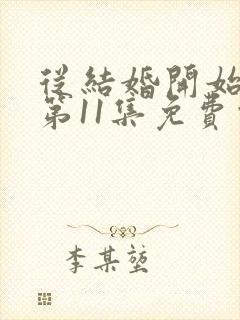 從結婚開始
第11集免費
李某堃